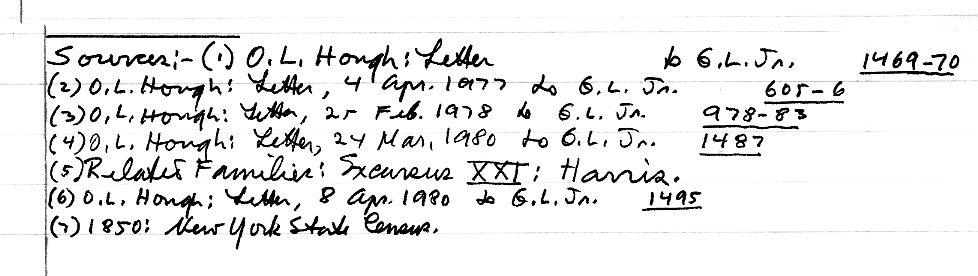 Sources:- (1) O.L. Hough: Letter to G.L. Jr. 1469-70
(2) O.L. Hough: Letter, 4 Apr. 1977 to G.L. Jr. 605-6
(3) O.L. Hough: Letter, 25 Feb. 1978 to G.L. Jr. 978-83
(4) O.L. Hough: Letter, 24 Mar. 1980 to G.L. Jr. 1487
(5) Related Families: Excursus XXI: Harris.
(6) O.L. Hough: Letter, 8 Apr. 1980 to G.L. Jr. 1495
(7) 1850: New York State Census.